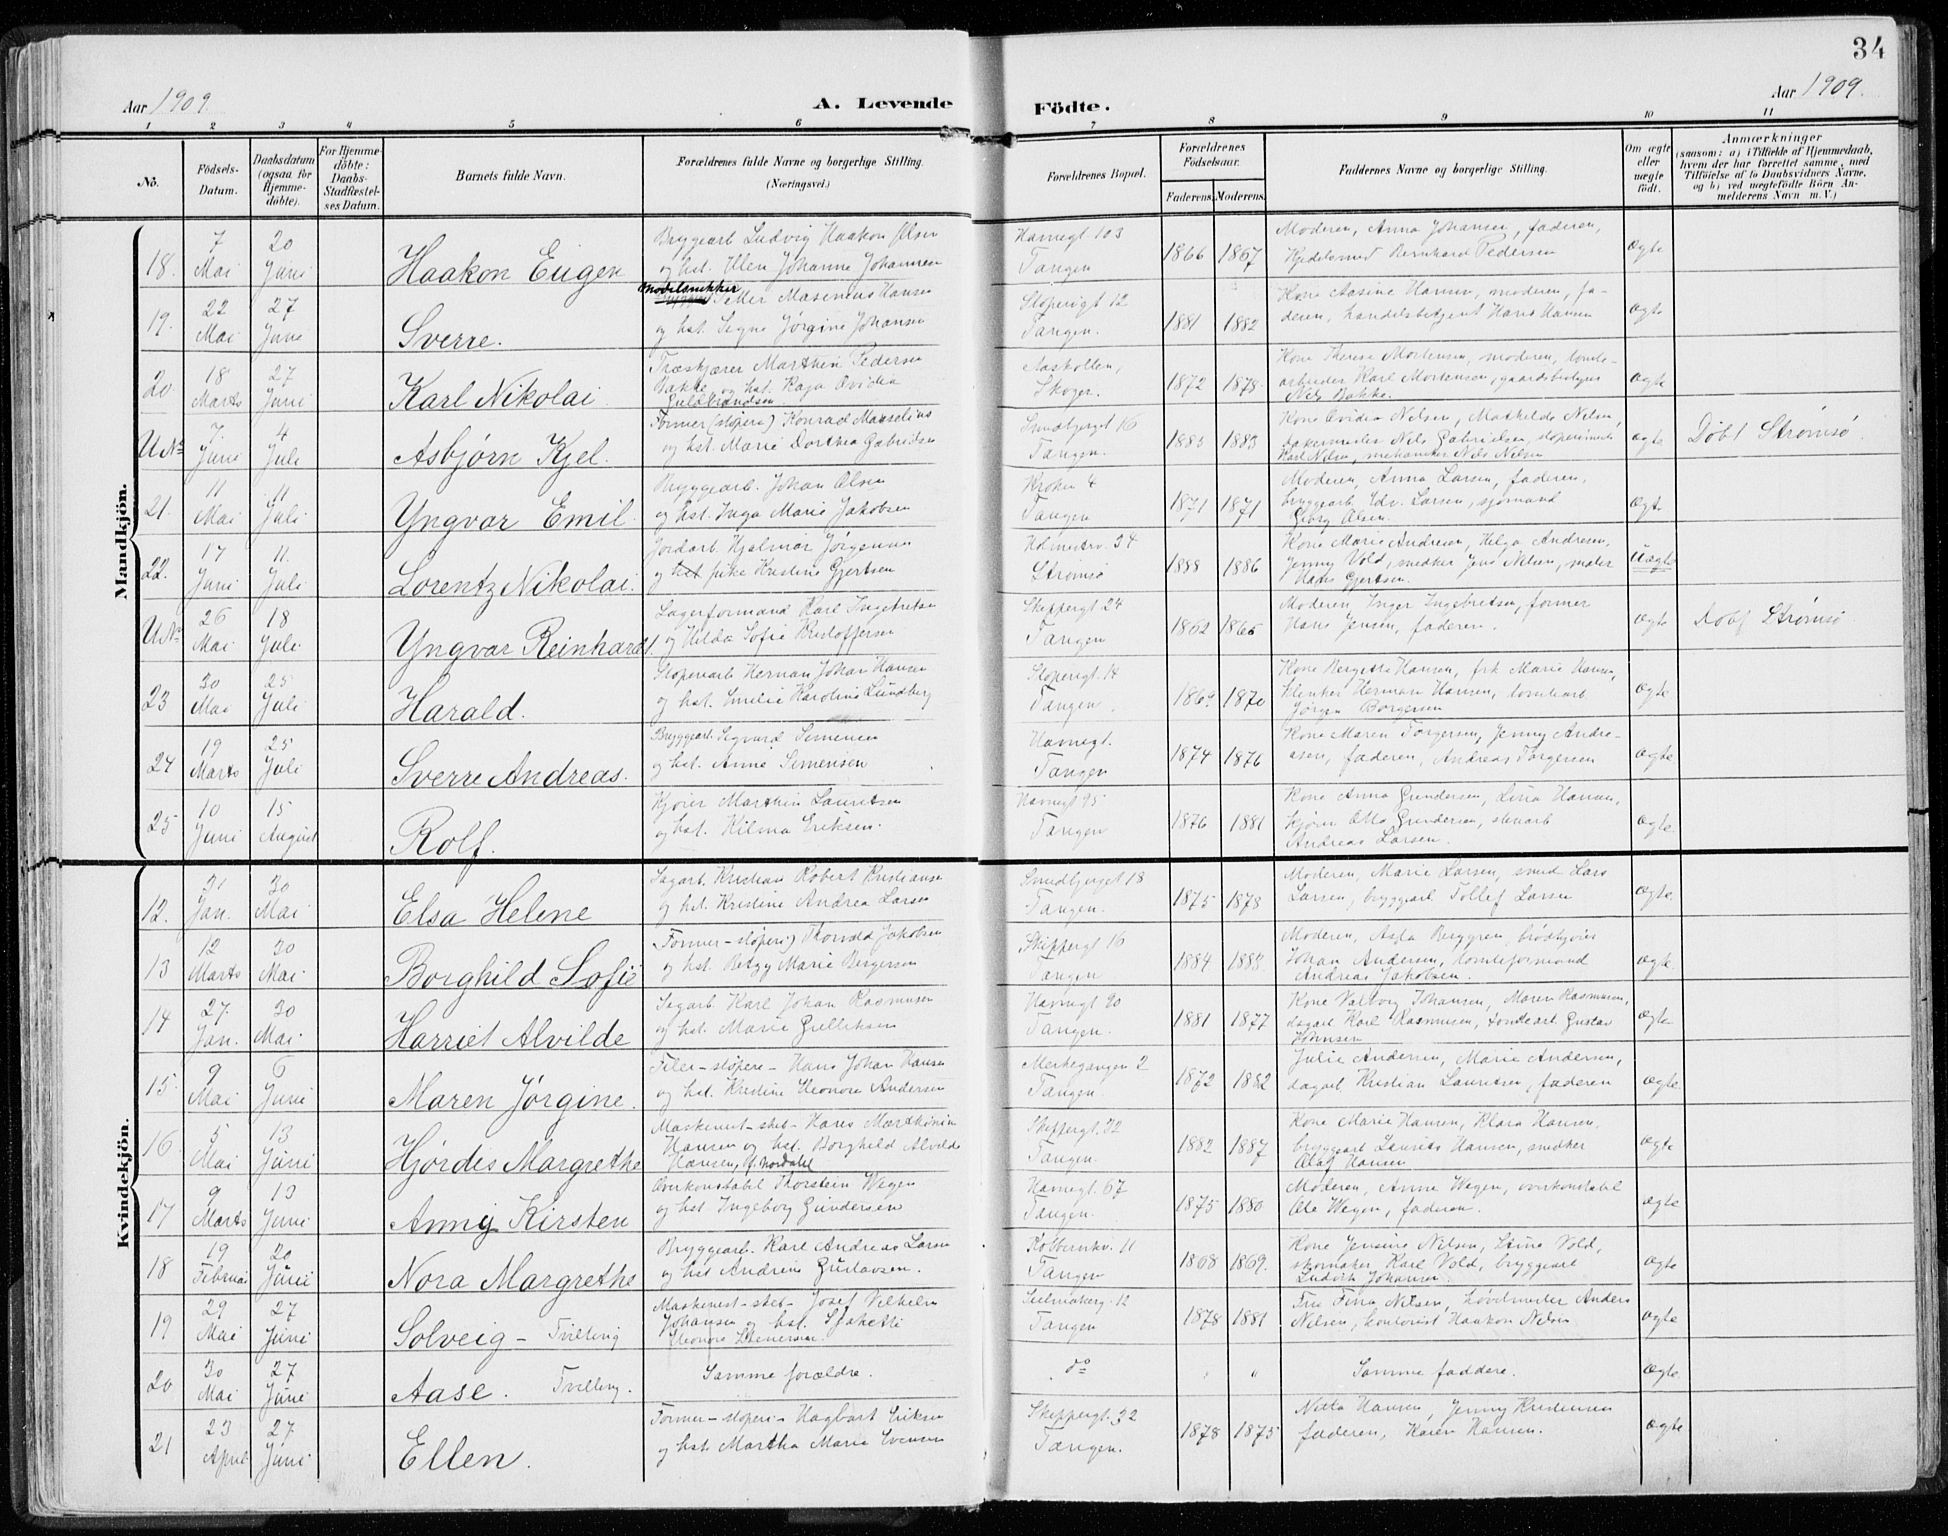 34
Aar 1909.
A. Levende
Födte.
Aar 1909.
1 2 3 4 5 6 7 8 9 10 11
No.
Födsels-
Datum.
Daabsdatum
(ogsaa for
Hjemme-
döbte).
For Hjemme-
döbte:
Daabs-
Stadfæstel-
ses Datum.
Barnets fulde Navn.
Forældrenes fulde Navne og borgerlige Stilling.
(Næringsvei.)
Forældrenes Bopæl.
Forældrenes
Födselsaar.
Faderens. Moderens.
Faddernes Navne og borgerlige Stilling.
Om ægte
eller
uægte
födt.
Anmærkninger
(saasom: a) i Tilfælde af Hjemmedaab,
hvem der har forrettet samme, med
Tilföielse af to Daabsvidners Navne,
og b) ved uægtefödte Börn An-
melderens Navn m. V.)
Mandkjön.
18. 7 Mai 20 Juni Haakon Eugen
Bryggearb. Ludvig Haakon Olsen
og hst. Johanne Johannesen
Havnegt. 103
Tangen
1866 1867
Moderen, Anna Johansen, faderen,
Kjedelsmed Bernhard Pedersen
ægte
19. 22 Mai 27 Juni Sverre.
Modelsnekker
Masenius Hansen
og hst. Signe Jørgine Johansen
Støperigt 12
Tangen.
1881 1882
Kone Aasine Hansen, moderen, fa-
deren, handelsbetjent Hans Hansen
ægte
20 18 Marts 27 Juni Karl Nikolai
Marthin Pedersen
Bakke og hst. Kaja Ovidia
Guldbrandsen.
Aaskollen,
Skoger.
1872 1878
Kone Therese Mortensen, moderen, tomte-
arbeider Karl Mortensen, gaardsbestyrer
Nils Bakke.
ægte
U No 7 Juni 4 Juli Asbjørn Kjel.
Former (støperi) Konrad Marselius
og hst. Marie Dorthea Gabrielsen
Smedbjerget 16
Tangen.
1883 1883
Kone Ovidia Nilsen, Mathilde Nilsen,
bakermester Nils Gabrielsen,
Karl Nilsen, mekaniker Nils Nilsen
ægte
Døbt Strømsø.
21. 11 Mai 11 Juli Yngvar Emil.
Bryggearb. Johan Olsen
og hst. Inga Marie Jakobsen
Kroken 4
Tangen
1871 1871
Moderen, Anna Larsen, faderen,
bryggearb Edv. Larsen, sjømand
Georg Olsen.
ægte
22. 17 Juni 11 Juli Lorentz Nikolai.
Jordarb. Hjalmar Jørgensen
og hst pike Kristine Gjertsen
Holmestrv. 34
Strømsø
1888 1886
Kone Marie Andresen, Helga Andresen,
Jenny Vold, snedker Jens Nilsen, maler
Hans Gjertsen.
Uægte
U No 26 Mai 18 Juli Yngvar Reinhardt.
Lagerformand Karl Ingebretsen
og Hilda Sofie Kristoffersen
Skippergt 24
Tangen
1862 1865
Moderen, Inger Ingebretsen, former
Hans Jensen, faderen.
ægte
Døbt Strømsø
23 30 Mai 25 Juli Harald.
Støperiarb Herman Johan Hansen
og hst. Emilie Karoline Lundberg
Støperigt. 14
Tangen.
1869 1870
Kone Bergitte Hansen, frk Marie Hansen,
klinker Herman Hansen, tomtearb
Jørgen Borgersen
ægte
24 19 Marts 25 Juli Sverre Andreas.
Bryggearb. Sigvard Simensen
og hst. Anne Simensen
Havnegt.
Tangen
1874 1876
Kone Maren Torgersen, Jenny Andre-
asen, faderen, Andreas Torgersen
ægte
25 10 Juni 15 August Rolf.
Kjører Marthin Lauritsen
og hst. Hilma Eriksen.
Havnegt 95
Tangen
1876 1881
Kone Anna Gundersen, Lina Hansen,
kjører Otto Gundersen, stenarb
Andreas Larsen.
ægte
Kvindekjön.
12. 31 Jan. 30 Mai Elsa Helene
Sagarb. Kristian Robert Kristiansen
og hst. Kristine Andrea Larsen
Smedbjerget 18
Tangen.
1875 1878
Moderen, Marie Larsen, smed Lars
Larsen, bryggearb Tollef Larsen
ægte.
13 12 Marts 30 Mai Borghild Sofie
Former – støperi) Thorvald Jakobsen
og hst. Betzy Marie Bergersen
Skippergt 16
Tangen
1884 1888
Moderen, Asta Berggren, brødkjører
Johan Andersen, tomteformand
Andreas Jakobsen.
ægte
14 27. Jan. 30 Mai. Harriet Alvilde
Sagarb. Karl Johan Rasmusen
og hst. Marie Gulliksen
Havnegt 90
Tangen.
1881 1877
Kone Valborg Johansen, Maren Rasmusen,
dagarb Karl Rasmusen, tomtearb Gustav
Johnsen
ægte
15 9 Mai 6 Juni Maren Jørgine.
Filer – støperi – Hans Johan Hansen
og hst. Kristine Eleonore Andersen
2
Tangen.
1872 1882
Julie Andersen, Marie Andersen,
dagarb Kristian Lauritsen, faderen
ægte
16 5 Mai 13 Juni Hjørdis Margrethe
Maskinist – skib – Hans Marthinius
Hansen og hst. Borghild Alvilde
Hansen, f. Nordahl
Skippergt. 32
Tangen.
1882 1887
Kone Marie Hansen, Klara Hansen,
bryggearb Laurits Hansen, snedker
Olaf Hansen
ægte
17 9 Marts 13 Juni Anny Kirsten
Overkonstabel Thorstein Wegen
og hst. Ingeborg Gundersen
Havnegt. 67
Tangen.
1875 1880
Moderen, Anne Wegen, overkonstabel
Ole Wegen, faderen.
ægte
18 19 Februar 20 Juni Nora Margrethe
Bryggearb. Karl Andreas Larsen
og hst Andrine Gustavsen.
11
Tangen
1868 1869.
Kone Jensine Nilsen, Stina Vold,
skomaker Karl Vold, bryggearb
Ludvik Johansen.
ægte
19 29 Mai 27 Juni Solveig – Tvilling
Maskinist – skib – Josef Vilhelm
Johansen og hst.
Eleonore
12
Tangen
1878 1881
Fru Fina Nilsen, Anders
Nilsen, kontorist Haakon Nilsen
ægte
20 30 Mai 27 Juni Aase. Tvilling.
Samme forældre.
do " "
Samme faddere.
ægte
21 23 April 27 Juni Ellen.
Former – støperi – Hagbart Eriksen
og hst. Martha Marie Evensen
Skippergt. 32
Tangen.
1878 1875
Hansen, Jenny Kristensen
faderen, Karen Hansen.
ægte